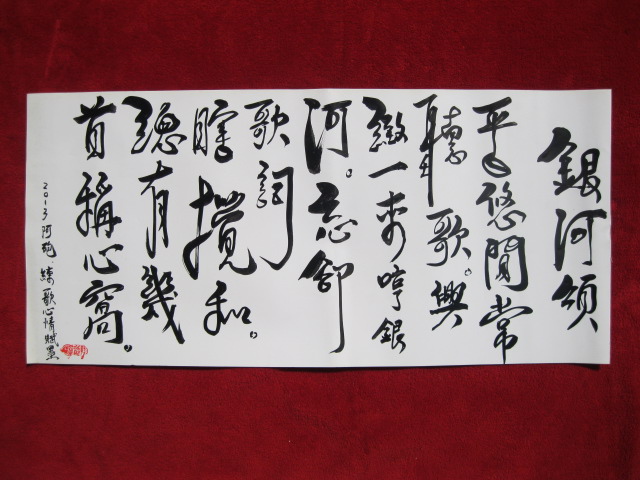 銀河頌
平日悠閒常
聽歌。興
緻一來哼銀
河。忘卻
歌詞
瞎攪和。
總有幾
首稱心窩。
2013 阿 練歌心情賦墨